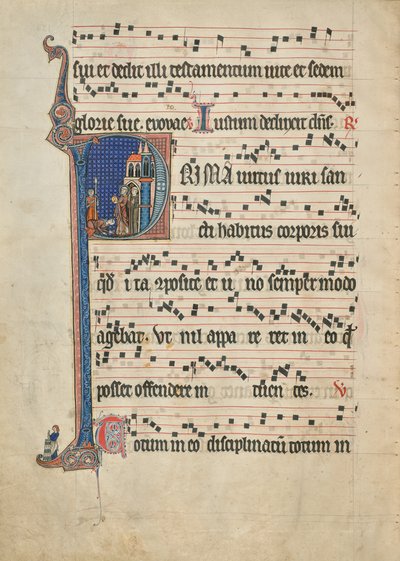 sui et dedit illi testamentum uite et sedem
glorie sue. evovae. Iustum deduxit dn̄s. R
PRIMA uirtus uiri san
cti habitus corporis sui
qđ ita cōposite et uno semper modo
agebat. Vt nil appareret in eo qđ
posset offendere intuentes. V
Totum in eo disciplinatū totum in